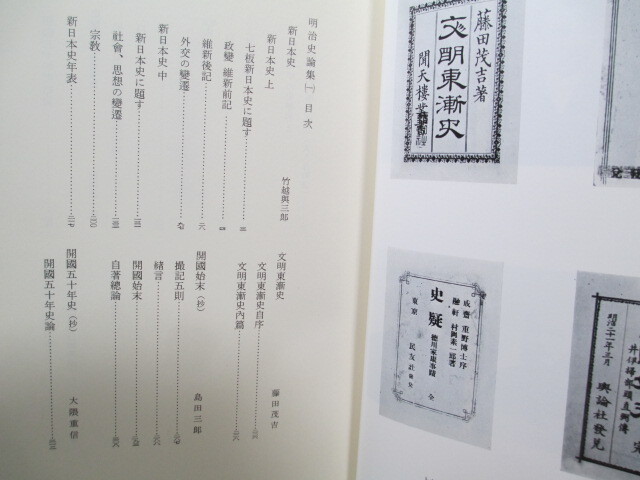 明治史論集(一) 目次
新日本史
竹越與三郎
新日本史 上
七版新日本史に題す
政變 維新前記
維新後記
外交の變遷
新日本史 中
新日本史に題す
社會、思想の變遷
宗教
新日本史年表
文明東漸史
藤田茂吉
文明東漸史自序
文明東漸史內篇
開國始末(抄)
島田三郎
撮記五則
緖言
開國始末
自著總論
開國五十年史(抄)
大隈重信
開國五十年史論
藤田茂吉著
文明東漸史
聞天樓
成齋 重野博士序
融軒 村岡素一郎著
史疑
德川家康事蹟
全
東京 民友社
明治二十一年三月
輿論社發兌